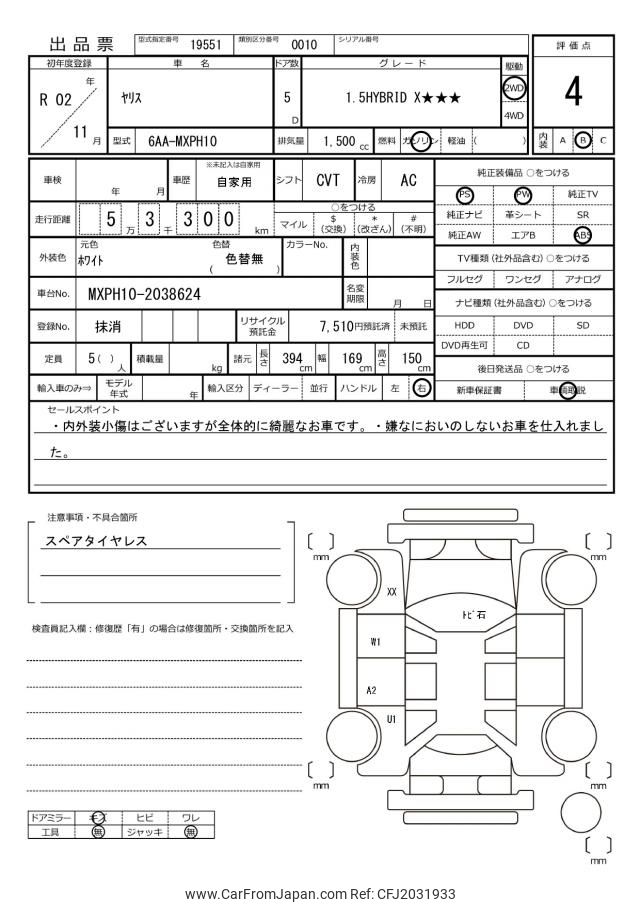 出品票 型式指定番号 19551 類別区分番号 0010 シリアル番号
評価点
4
初年度登録 車名 ドア数 グレード 駆動
R 02 年 ヤリス 5 D 1.5HYBRID X★★★ 2WD
4WD
11 月 型式 6AA-MXPH10 排気量 1,500 cc 燃料 ガソリン 軽油 ( ) 内装 A B C
車検 年 月 車歴 ※未記入は自家用 自家用 シフト CVT 冷房 AC
走行距離 5 万 3 千 3 0 0 km
○をつける
マイル $(交換) *(改ざん) #(不明)
外装色 元色 ホワイト 色替 ( 色替無 ) カラーNo. 内装色
車台No. MXPH10-2038624 名変期限 月 日
登録No. 抹消 リサイクル預託金 7,510円預託済 未預託
定員 5 ( ) 人 積載量 kg 諸元 長さ 394 cm 幅 169 cm 高さ 150 cm
輸入車のみ⇒ モデル年式 年 輸入区分 ディーラー 並行 ハンドル 左 右
純正装備品 ○をつける
PS PW 純正TV
純正ナビ 革シート SR
純正AW エアB ABS
TV種類 (社外品含む) ○をつける
フルセグ ワンセグ アナログ
ナビ種類 (社外品含む) ○をつける
HDD DVD SD
DVD再生可 CD
後日発送品 ○をつける
新車保証書 車輌取説
セールスポイント
・内外装小傷はございますが全体的に綺麗なお車です。・嫌なにおいのしないお車を仕入れまし
た。
注意事項・不具合箇所
スペアタイヤレス
検査員記入欄：修復歴「有」の場合は修復箇所・交換箇所を記入
ドアミラー キズ ヒビ ワレ
工具 無 ジャッキ 無
〔 〕mm
〔 〕mm
XX
トビ石
W1
A2
U1
〔 〕mm
〔 〕mm
〔 〕mm
www.CarFromJapan.com Ref: CFJ2031933